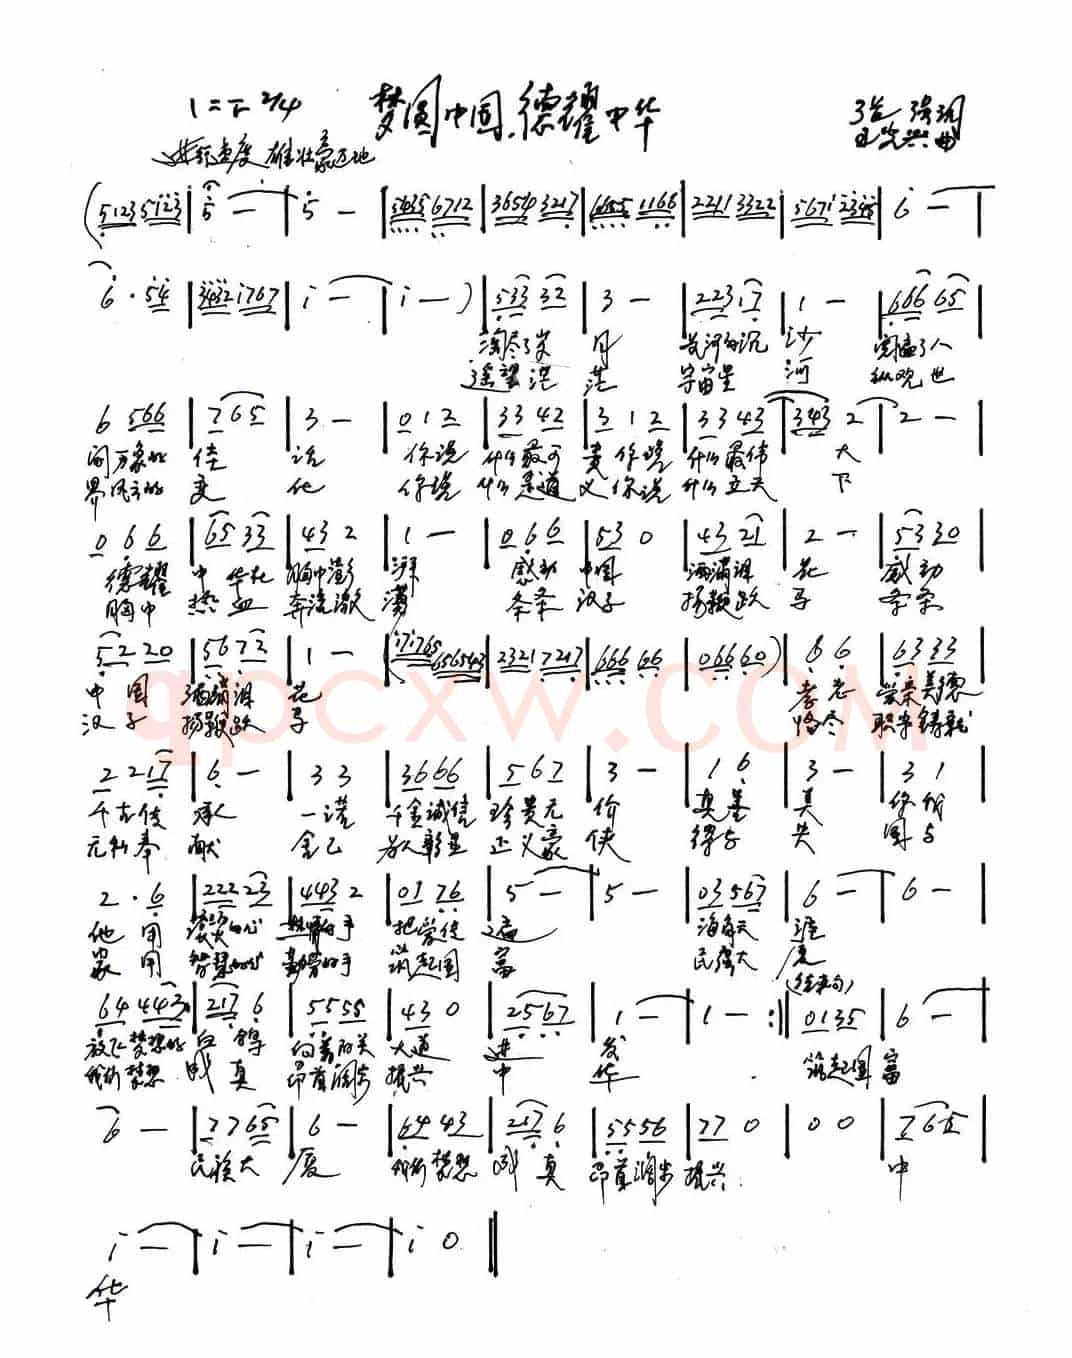 1=F 2/4 梦圆中国.德耀中华
张 词
曲
速度 雄壮豪迈地
(51235123 | 5 — | 5 — | 5435 6712 | 3654 3217 | 6655 1166 | 2211 3322 | 5671 2345 | 6 — |
6 · 54 | 3432 1767 | 1 — | 1 — ) | 533 32 | 3 — | 2231 7 | 1 — | 666 65 |
淘尽了岁 月 长河的沉 沙 阅尽了人
遥望茫 茫 宇宙星 河 纵观世
6 566 | 7 65 | 3 — | 0 1 2 | 33 42 | 3 1 2 | 33 43 | 343 2 | 2 — |
间万象的 佳 话 你说 什么最可 贵 你说 什么最伟 大
界风云的 变 化 你说 什么是道 义 你说 什么立天 下
0 6 6 | 65 33 | 43 2 | 1 — | 0 6 6 | 53 0 | 43 21 | 2 — | 53 30 |
德耀 中 华在 胸中澎 湃 感动 中国 洒满泪 花 感动
胸中 热血 奔流激 荡 条条 汉子 扬鞭跃 马 条条
52 20 | 56 72 | 1 — | (171765 656543 | 2321 7217 | 666 66 | 0660) | 6 6 | 63 33 |
中 国 洒满泪 花 孝老 爱亲美德
汉子 扬鞭跃 马 恪尽 职守铸就
2 217 | 6 — | 3 3 | 36 66 | 5 67 | 3 — | 1 6 | 3 — | 3 1 |
千古传 承 一诺 千金诚信 珍贵无 价 真善 美 你帮
无私奉 献 舍己 救人彰显 正义豪 侠 得与 失 国与
2 · 6 | 222 23 | 443 2 | 01 76 | 5 — | 5 — | 03 567 | 6 — | 6 — |
他 用 滚烫的心 手 把爱传 遍 海角天 涯
家 用 智慧的心 勤劳的手 筑起国 富 民强大 厦
(结束句)
64 443 | 217 6 | 55 55 | 43 0 | 25 67 | 1 — | 1 — :| 0135 | 6 — |
放飞梦想的 白 鸽 向着阳关 大道 进 发 筑起国 富
我们梦想 成 真 昂首阔步 振兴 中 华
6 — | 77 65 | 6 — | 64 43 | 217 6 | 55 56 | 77 0 | 0 0 | 7 65 |
民族大 厦 我们梦想 成 真 昂首阔步 振兴 中
1 — | 1 — | 1 — | 1 0 ‖
华
qpcxw.COM